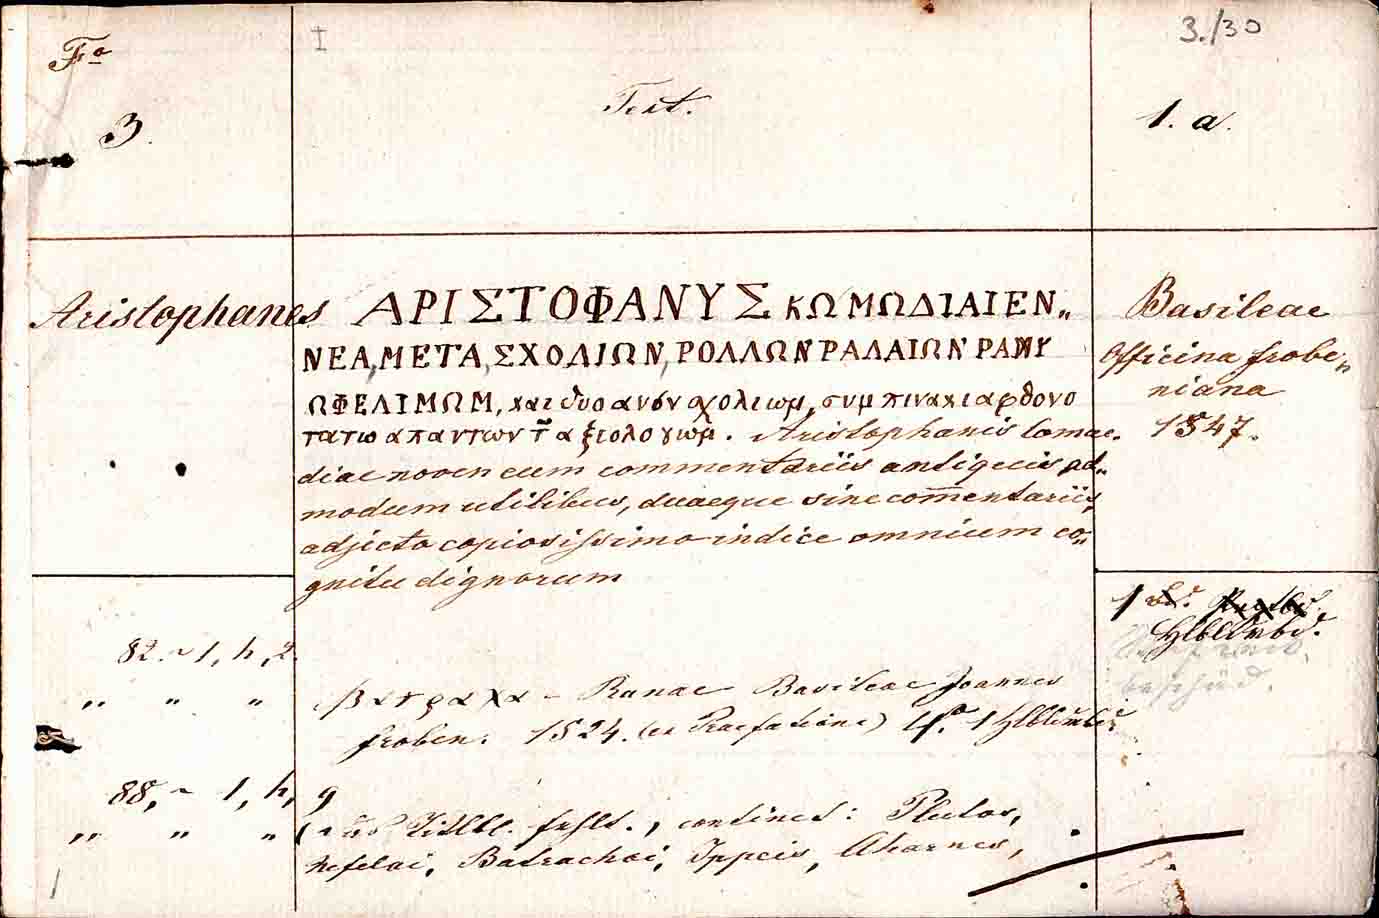 Fo
I
3./30
3.
Text.
1. a.
Aristophanes
ΑΡΙΣΤΟΦΑΝΥΣ ΚΩΜΩΔΙΑΙ ΕΝ„
ΝΕΑ, ΜΕΤΑ, ΣΧΟΛΙΩΝ, ΡΟΛΛΩΝ ΡΑΛΑΙΩΝ ΡΑΝΥ
ΩΦΕΛΙΜΩΜ, και δυο ανδν σχολιωμ, συμ πινακι αρθονο
τατω απαντων τ̃ αξιολογωμ. Aristophanis comoe„
diae novem cum commentariis antiquis ad„
modum utilibus, duaeque sine com̅entariis,
adjecto copiosissimo indice omnium co„
gnitu dignorum
Basileae
Officina frobe„
niana
1547.
1 Bd.
Hlbldrbd.
beschäd.
82. ~ 1, h, 2.
„ „ „ βατραχα – Ranae Basileae Joannes
froben. 1524. (ex Praefatione) 4o. 1 Hlbldrbd
88, ~ 1, h, 9
„ „ „ Titlbl. fehlt., continet: Plutos,
Nefelai, Batrachoi, Ippeis, Aharnes,